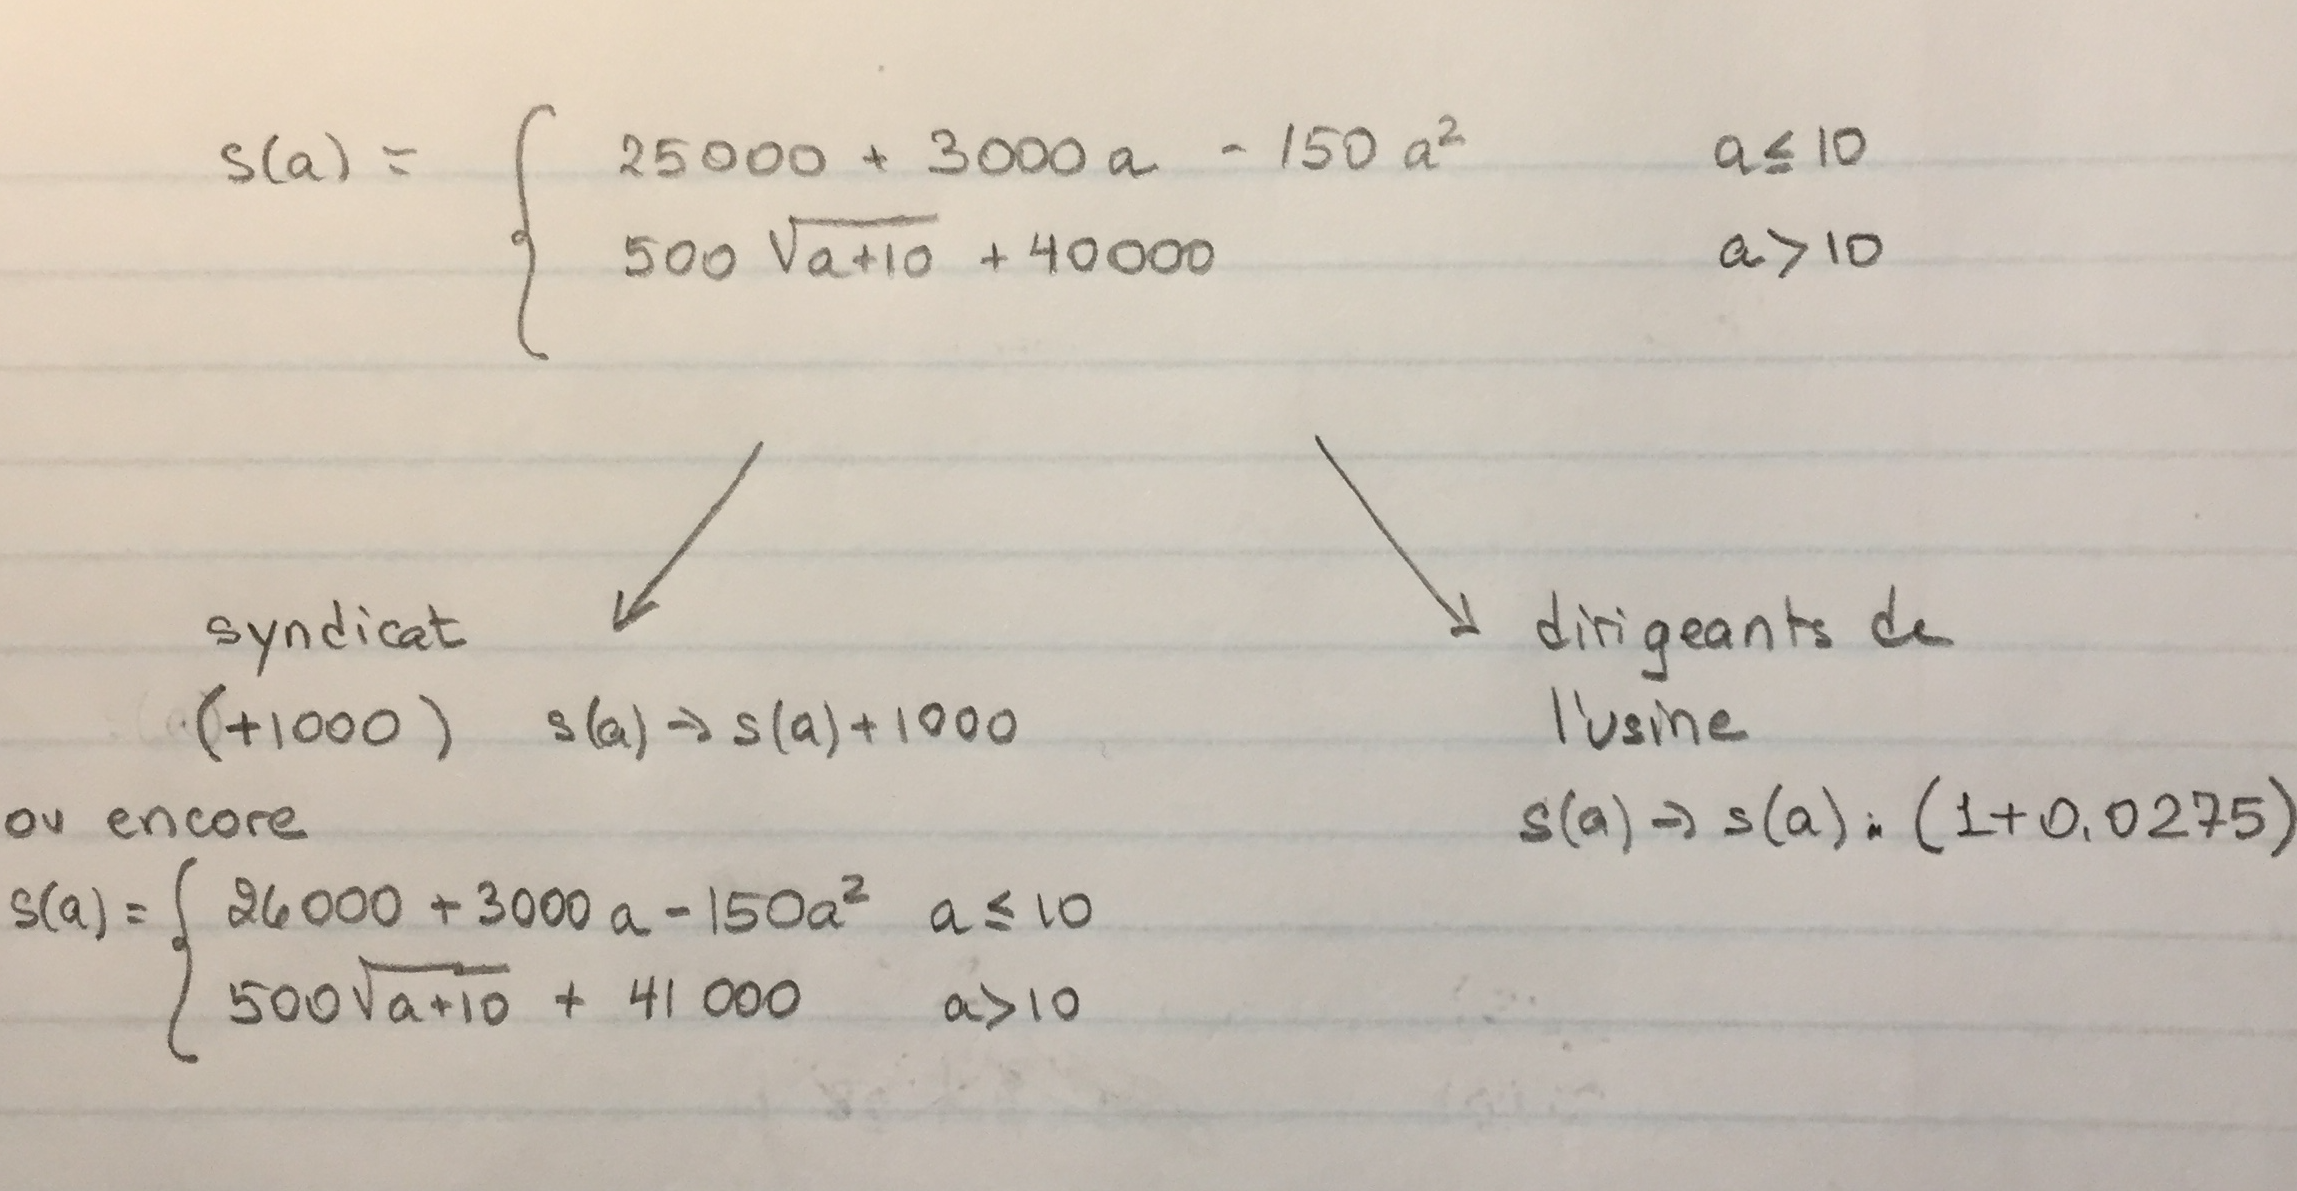 s(a) = { 25000 + 3000a - 150a² a ≤ 10
500 √(a+10) + 40000 a > 10
syndicat
(+1000) s(a) → s(a) + 1000
ou encore
s(a) = { 26000 + 3000a - 150a² a ≤ 10
500√(a+10) + 41 000 a > 10
dirigeants de
l'usine
s(a) → s(a) · (1+0.0275)